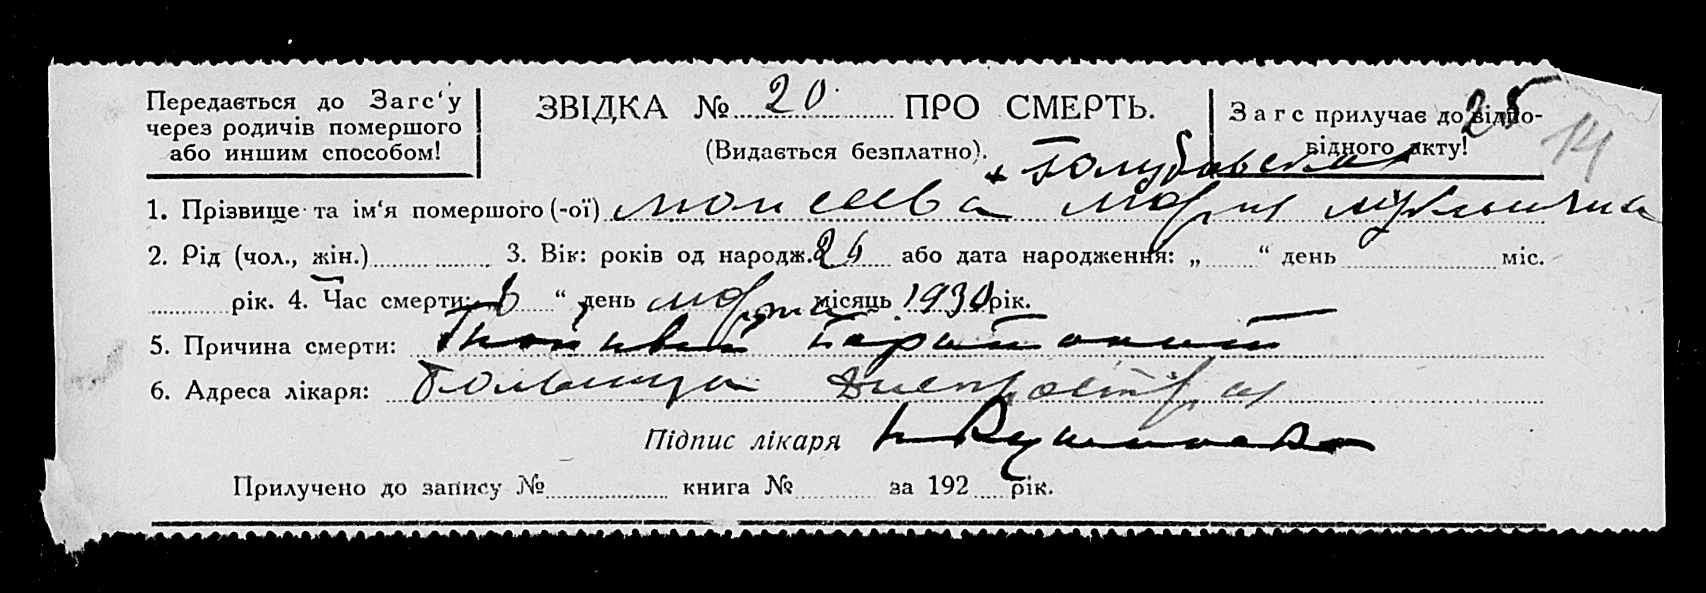 Передається до Загс'у
через родичів помершого
або иншим способом!
ЗВІДКА № 20 ПРО СМЕРТЬ.
(Видається безплатно).
Загс прилучає до відпо-
відного акту!
25
14
+ Голубовская
1. Прізвище та ім'я помершого (-ої) Моисеева Мария
2. Рід (чол., жін.) 3. Вік: років од народж. 26 або дата народження: „ “ день міс.
рік. 4. Час смерти: 6 “ день марта місяць 1930 рік.
5. Причина смерти: Гнойный перитонит
6. Адреса лікаря: Больница Днепростроя
Підпис лікаря
Прилучено до запису № книга № за 192 рік.